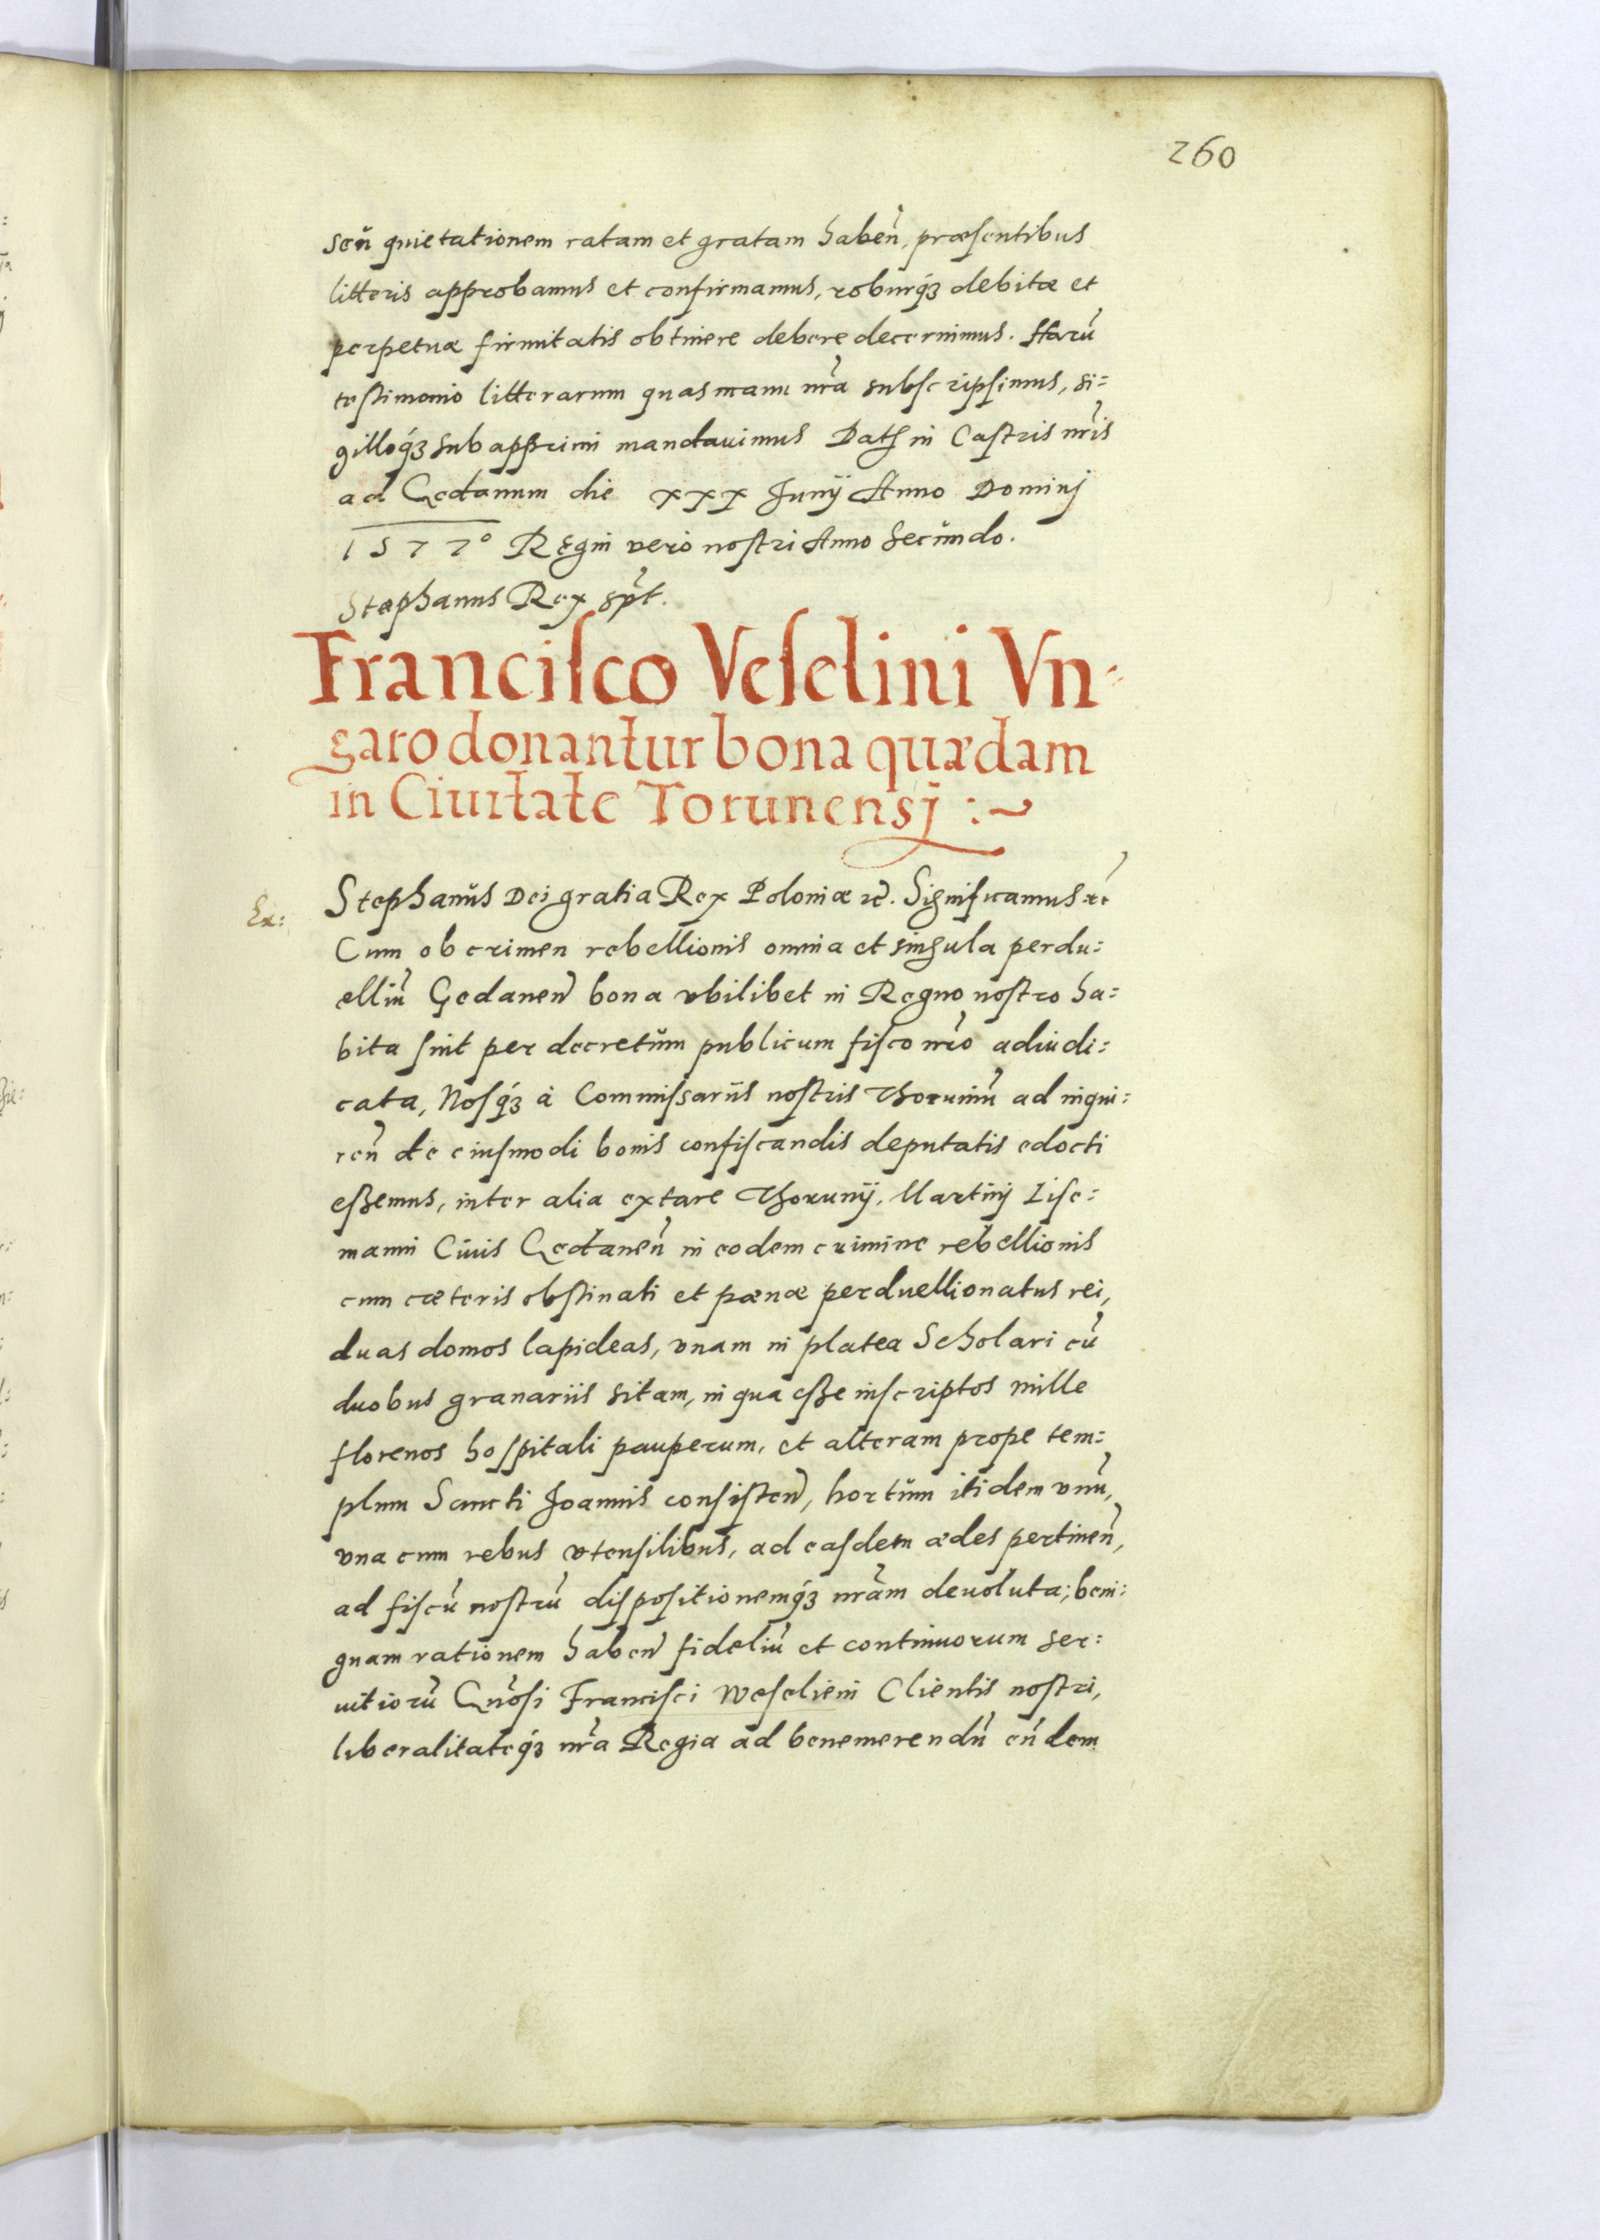 260
seu quietationem ratam et gratam haben̄, præsentibus
litteris approbamus et confirmamus, roburq́ꝫ debitæ et
perpetuæ firmitatis obtinere debere decernimus. Harū
testimonio litterarum quas manu nr̄a subscripsimus, si=
gilloq́ꝫ subapprimi mandauimus Dat in Castris nr̄is
ad Gedanum die xxx Junij Anno Dominj
1577º Regni vero nostri Anno secundo.
Stephanus Rex spt.
Francisco Veselini Vn=
garo donantur bona quædam
in Ciuitate Torunensj :~
Ex:
Stephanus Dei gratia Rex Poloniæ ꝛc. Significamus ꝛc
Cum ob crimen rebellionis omnia et singula perdu=
elliū Gedanen̄ bona vbilibet in Regno nostro ha=
bita sint per decretum publicum fisco nr̄o adiudi=
cata, Nosq́ꝫ à Commissariis nostris Thoruniū ad inqui=
ren̄ de eiusmodi bonis confiscandis deputatis edocti
essemus, inter alia extare Thorunij, Martinj Lise=
manni Ciuis Gedanen̄ in eodem crimine rebellionis
cum cæteris obstinati et pænæ perduellionatus rei,
duas domos lapideas, vnam in platea Scholari cū
duobus granariis sitam, in qua esse inscriptos mille
florenos hospitali pauperum, et alteram prope tem=
plum Sancti Joannis consisten̄, hortum itidem vnū,
vna cum rebus vtensilibus, ad easdem ædes pertinen̄,
ad fiscū nostrū dispositionemq́ꝫ nr̄am deuoluta; beni=
gnam rationem haben̄ fideliū et continuorum ser=
uitiorū Gn̄osi Francisci Weselieni Clientis nostri,
liberalitateq́ꝫ nr̄a Regia ad benemerendū eūdem